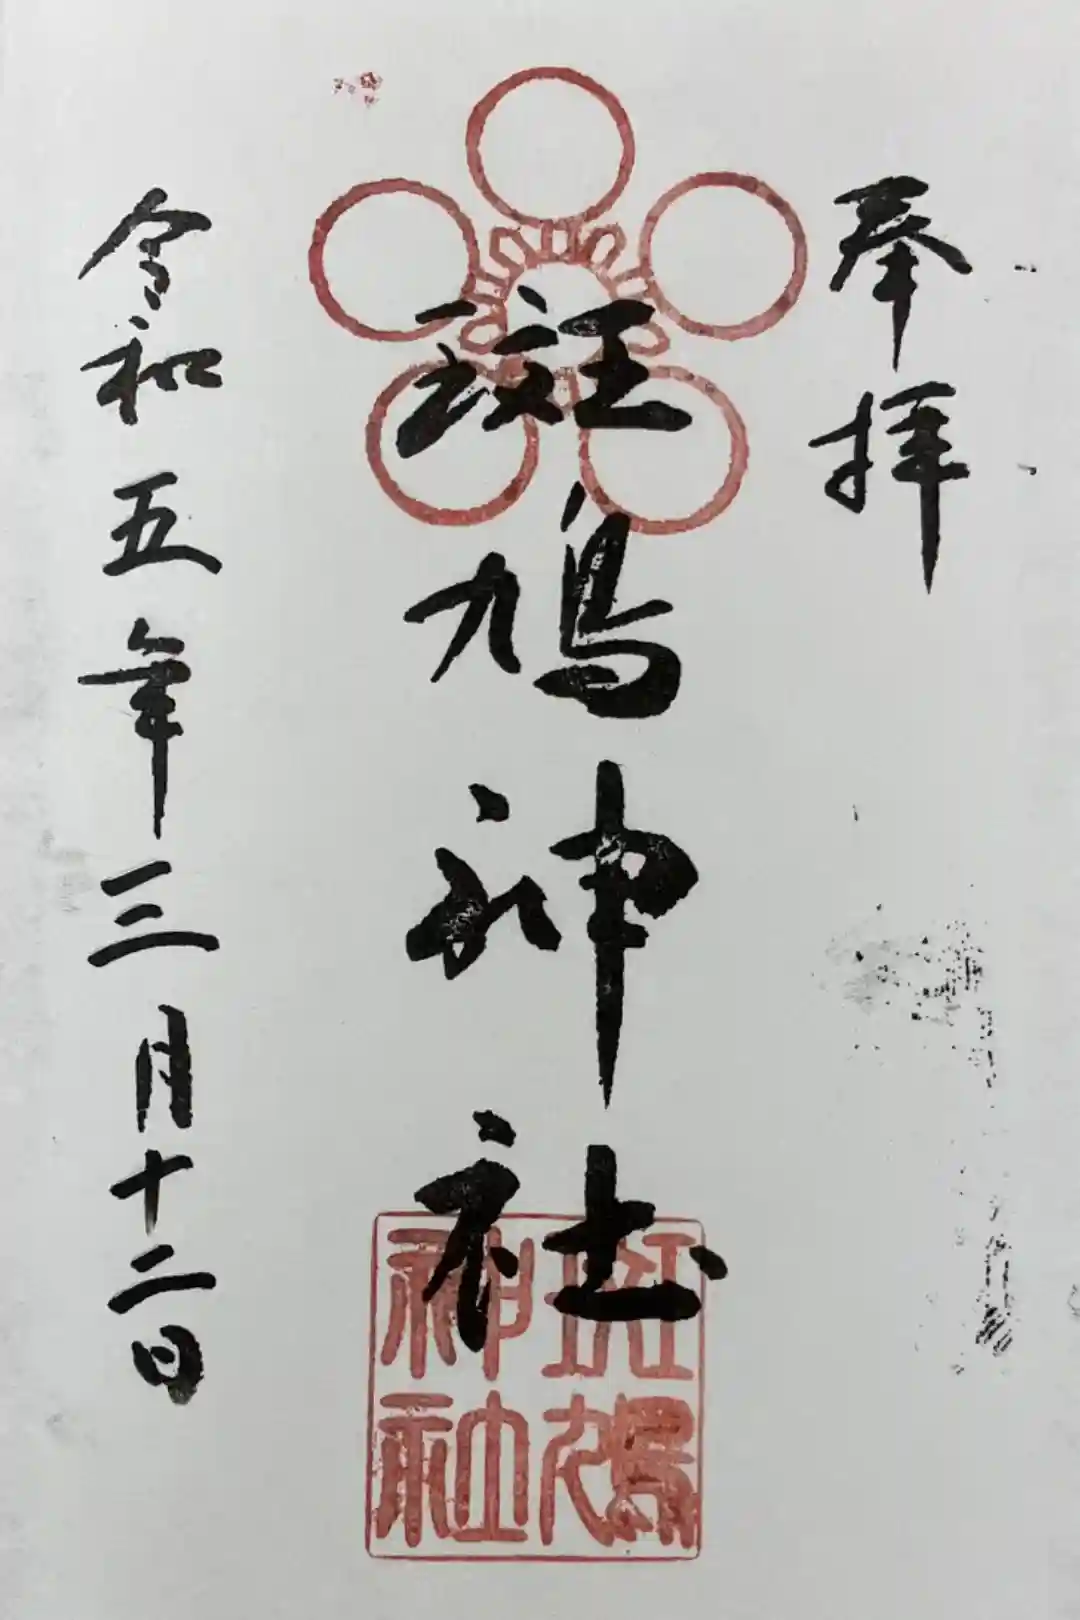 奉拝
斑鳩神社
斑鳩神社
令和五年三月十二日